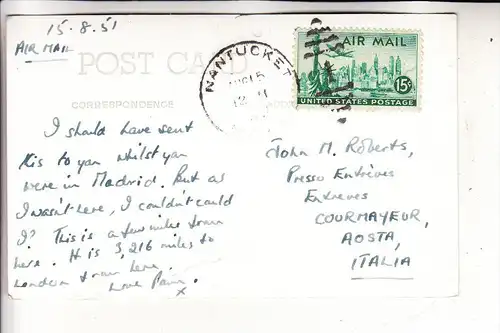 15.8.51
AIR MAIL
POST CARD
CORRESPONDENCE
NANTUCKET
AIR MAIL
15¢
UNITED STATES POSTAGE
I should have sent
this to you whilst you
were in Madrid. But as
I wasn't here, I couldn't could
I? This is a few miles from
here. It is 3,216 miles to
London from here.
Love
x
John M. Roberts,
Presso Entrèves
Entreves
COURMAYEUR,
AOSTA,
ITALIA